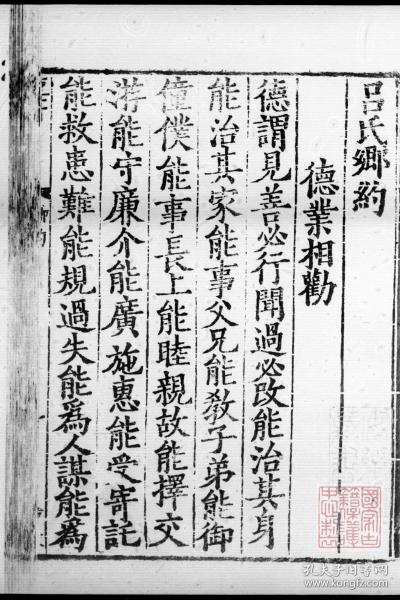 吕氏鄉約
德業相勸
德謂見善必行聞過必改能治其身
能治其家能事父兄能敎子弟能御
僮僕能事長上能睦親故能擇交
游能守廉介能廣施惠能受寄託
能救患難能規過失能爲人謀能爲
孔夫子旧书网
www.kongfz.com